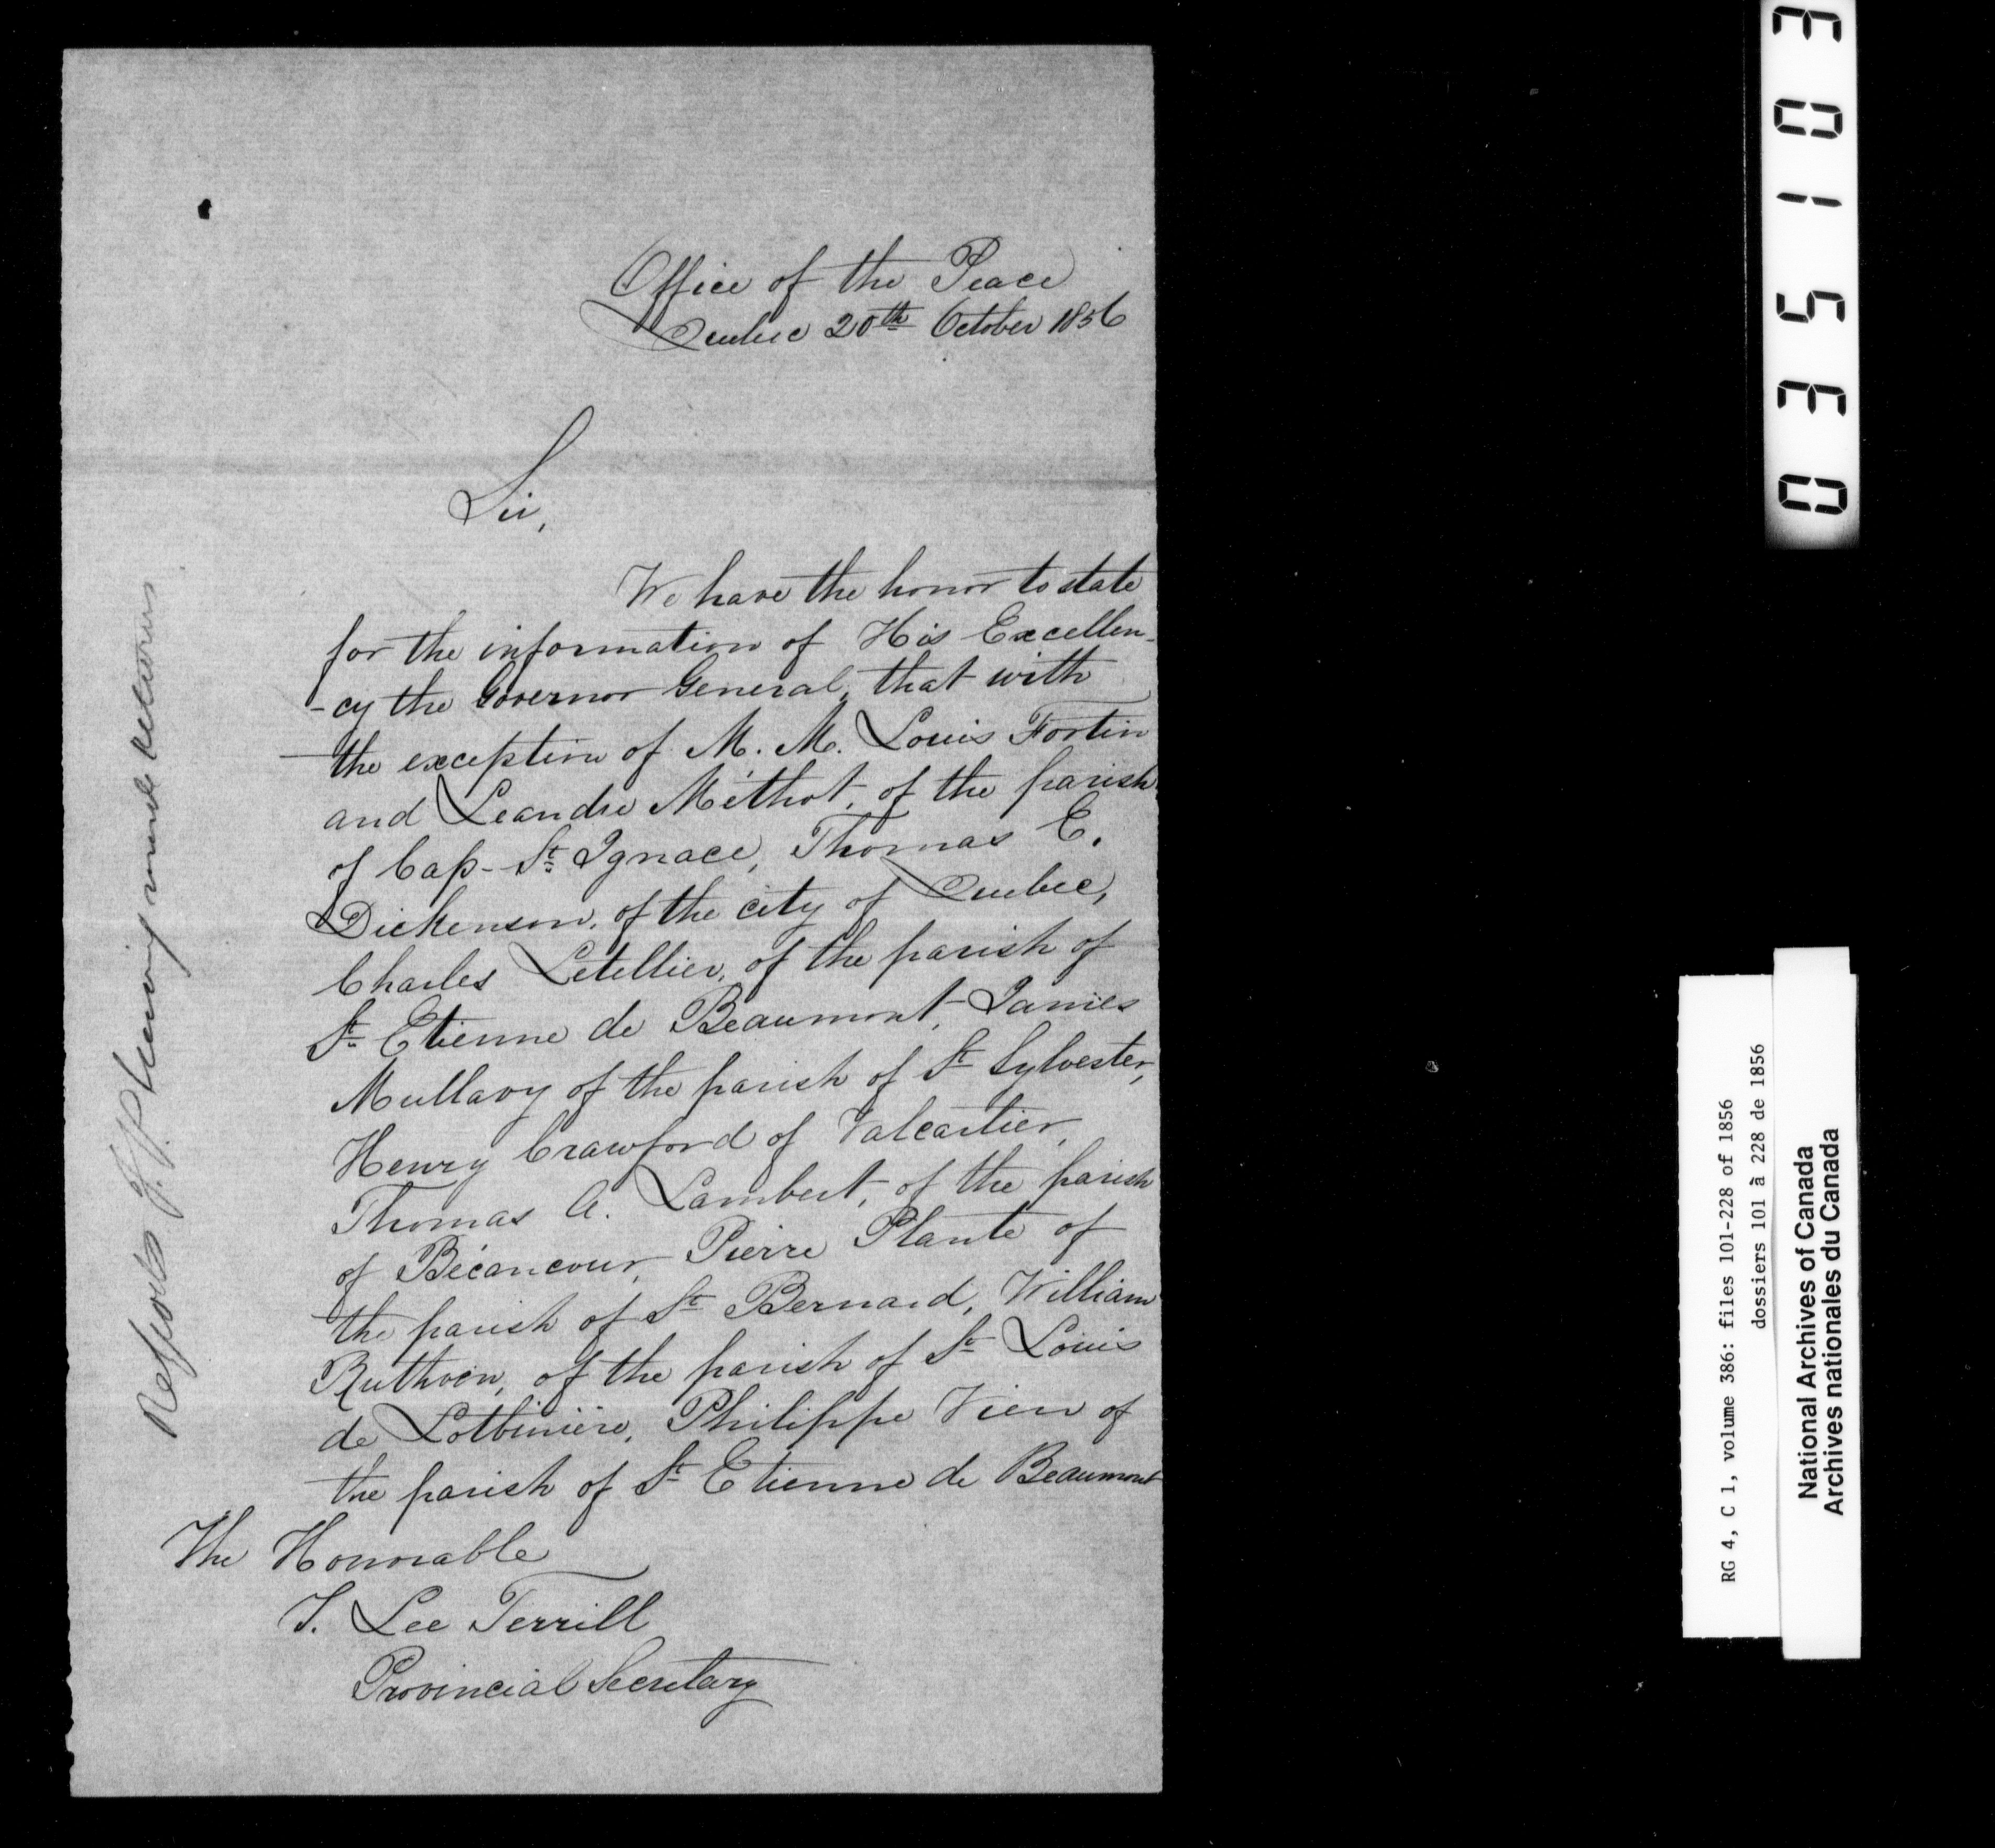 Office of the Peace
Quebec 20th October 1856
Sir,
We have the honor to state
for the information of His Excellen-
-cy the Governor General, that with
the exception of M. M. Louis Fortin
and Leandre Méthot, of the parish
of Cap-St Ignace, Thomas E.
Dickenson, of the city of Quebec,
Charles Letellier, of the parish of
St Etienne de Beaumont, James
Mullavy of the parish of St Sylvester,
Henry Crawford of Valcartier,
Thomas A. Lambert, of the parish
of Bécancour, Pierre Plante of
the parish of St Bernard, William
Ruthven, of the parish of St Louis
de Lotbinière, Philippe Vien of
the parish of St Etienne de Beaumont
The Honorable
T. Lee Terrill
Provincial Secretary
Reports J.P. having made returns
035103
RG 4, C 1, volume 386: files 101-228 of 1856
dossiers 101 à 228 de 1856
National Archives of Canada
Archives nationales du Canada